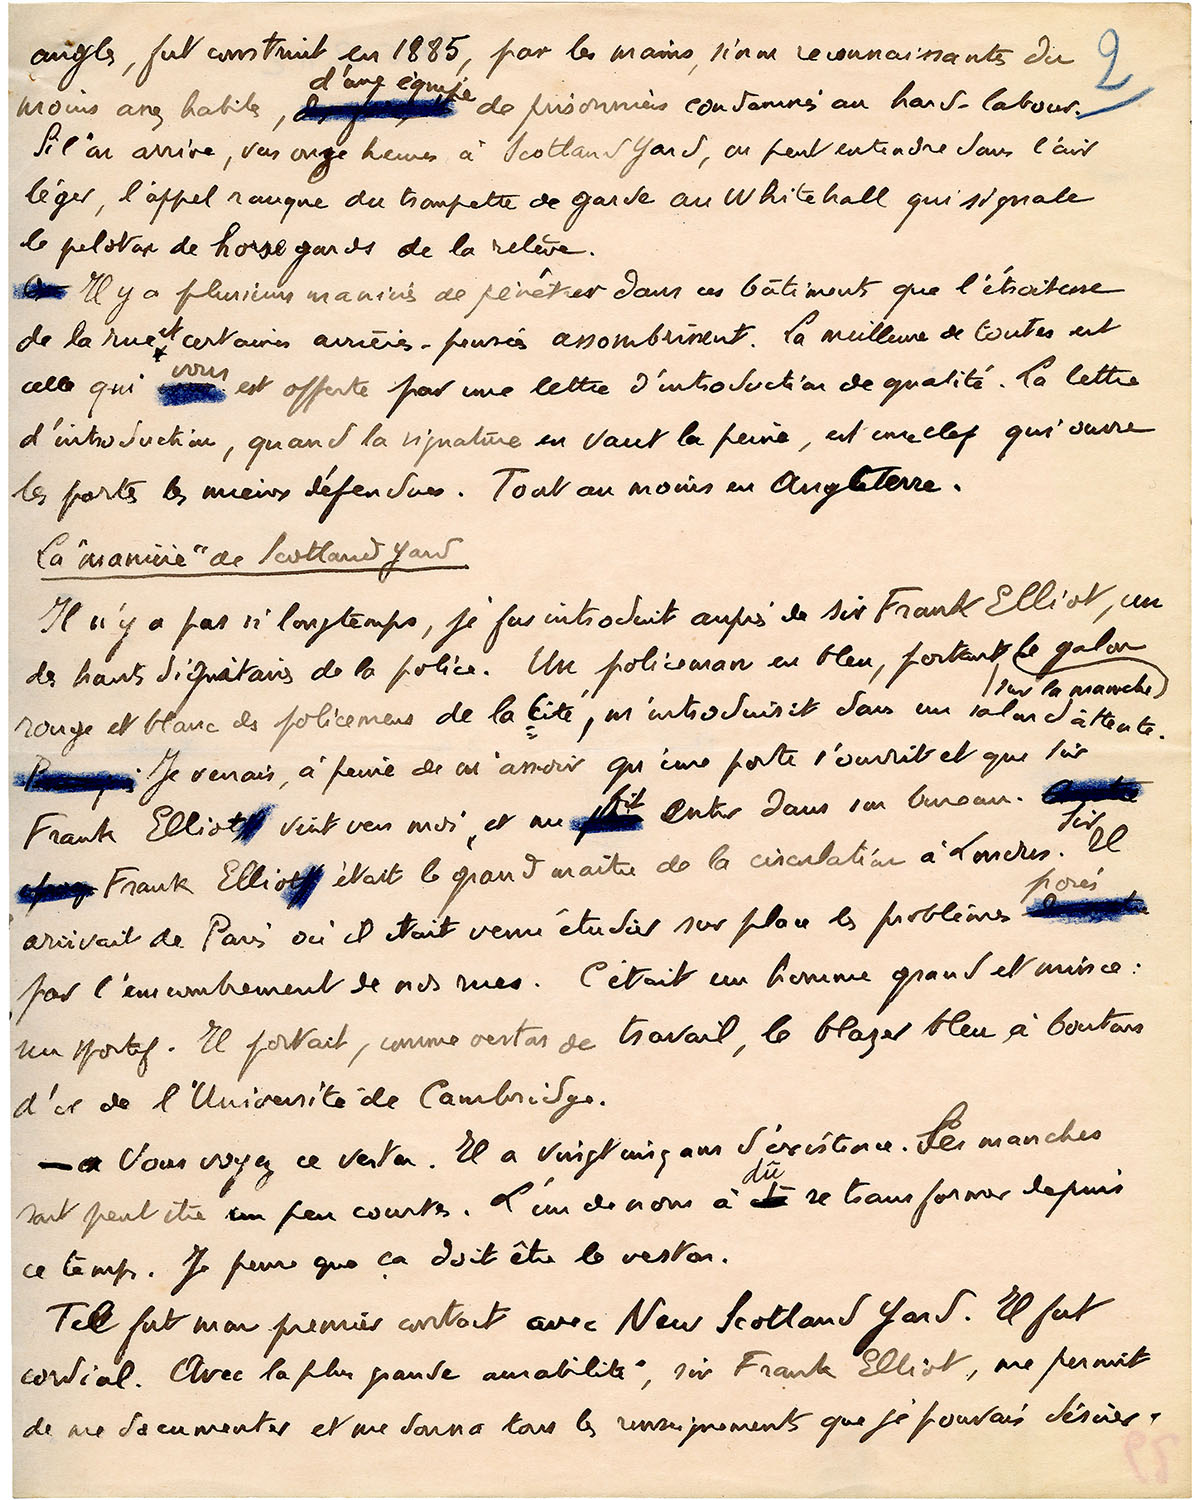 2
angles, fut construit en 1885, par les mains, sinon reconnaissantes du
moins assez habiles, d'une équipe de prisonniers condamnés au hard-labour.
Si l'on arrive, vers onze heures à Scotland Yard, on peut entendre dans l'air
léger, l'appel rauque du trompette de garde au Whitehall qui signale
le peloton de horse gards de la relève.
Il y a plusieurs manières de pénétrer dans ces bâtiments que l'étroitesse
de la rue et certaines arrières-pensées assombrissent. La meilleure de toutes est
celle qui vous est offerte par une lettre d'introduction de qualité. La lettre
d'introduction, quand la signature en vaut la peine, est une clef qui ouvre
les portes les mieux défendues. Tout au moins en Angleterre.
La "manière" de Scotland Yard
Il n'y a pas si longtemps, je fus introduit auprès de sir Frank Elliot, un
des hauts dignitaires de la police. Un policeman en bleu, portant le galon
(sur la manche)
rouge et blanc des policemens de la Cité, m'introduisit dans un salon d'attente.
Je venais, à peine de m'assoir qu'une porte s'ouvrit et que Sir
Frank Elliot vint vers moi, et me fit entrer dans son bureau. Sir
Frank Elliot était le grand maître de la circulation à Londres. Il
arrivait de Paris où il était venu étudier sur place les problèmes posés
par l'encombrement de nos rues. C'était un homme grand et mince :
un sportif. Il portait, comme veston de travail, le blazer bleu à boutons
d'or de l'Université de Cambridge.
— Vous voyez ce veston. Il a vingt cinq ans d'existence. Les manches
sont peut être un peu courtes. L'un de nous à dû se transformer depuis
ce temps. Je pense que ça doit être le veston.
Tel fut mon premier contact avec New Scotland Yard. Il fut
cordial. Avec la plus grande amabilité, sir Frank Elliot, me permit
de me documenter et me donna tous les renseignements que je pouvais désirer.